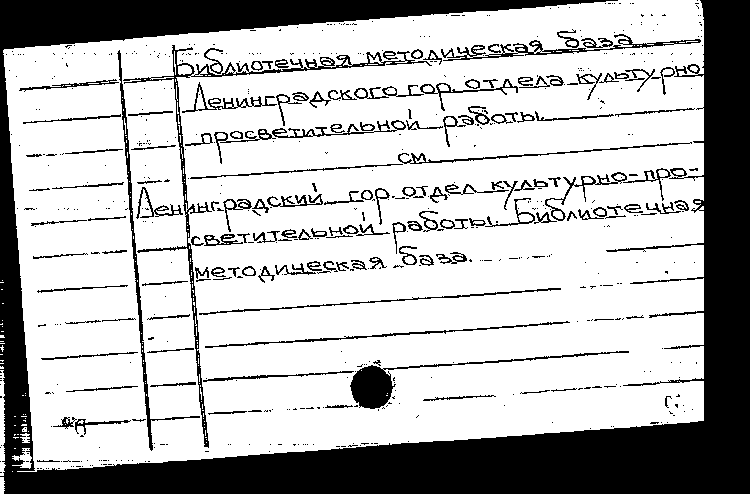 Библиотечная методическая база
Ленинградского гор. отдела культурно-
просветительной работы.
см.
Ленинградский гор. отдел культурно-про-
светительной работы. Библиотечная
методическая база.